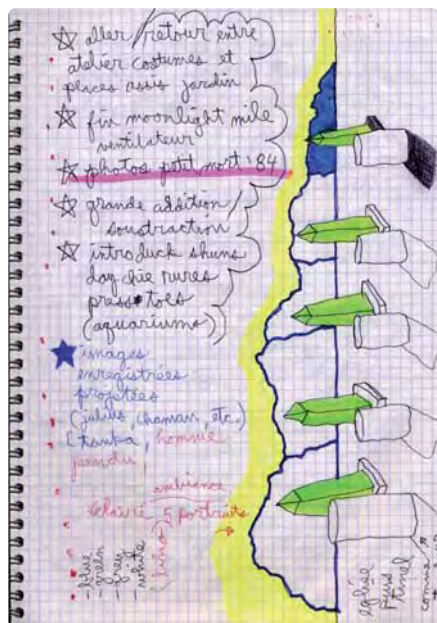 ☆ aller/retour entre
atelier costumes et
places assis jardin
☆ fin moonlight mile
ventilateur
☆ photos petit mort '84
☆ grande addition/
soustraction
☆ introduck shuns
day chie rures
press toes
(aquariums)
★ images
enregistrées
projetées
(julius, chaman, etc.)
(tanka, homme
ambiance
éclairé 5 portraits
- blue
- green
- grey
- white
église
tunnel
comme